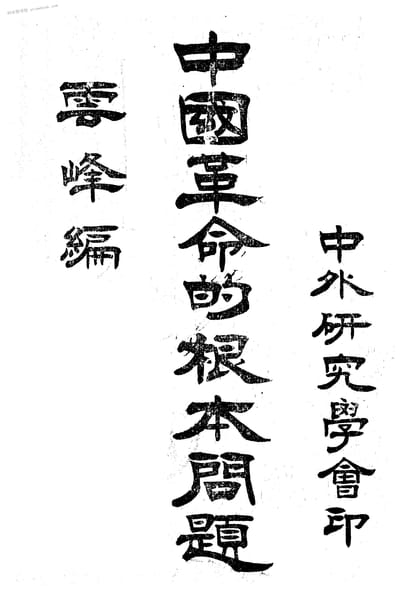 中外研究學會印
中國革命的根本問題
雲峰編